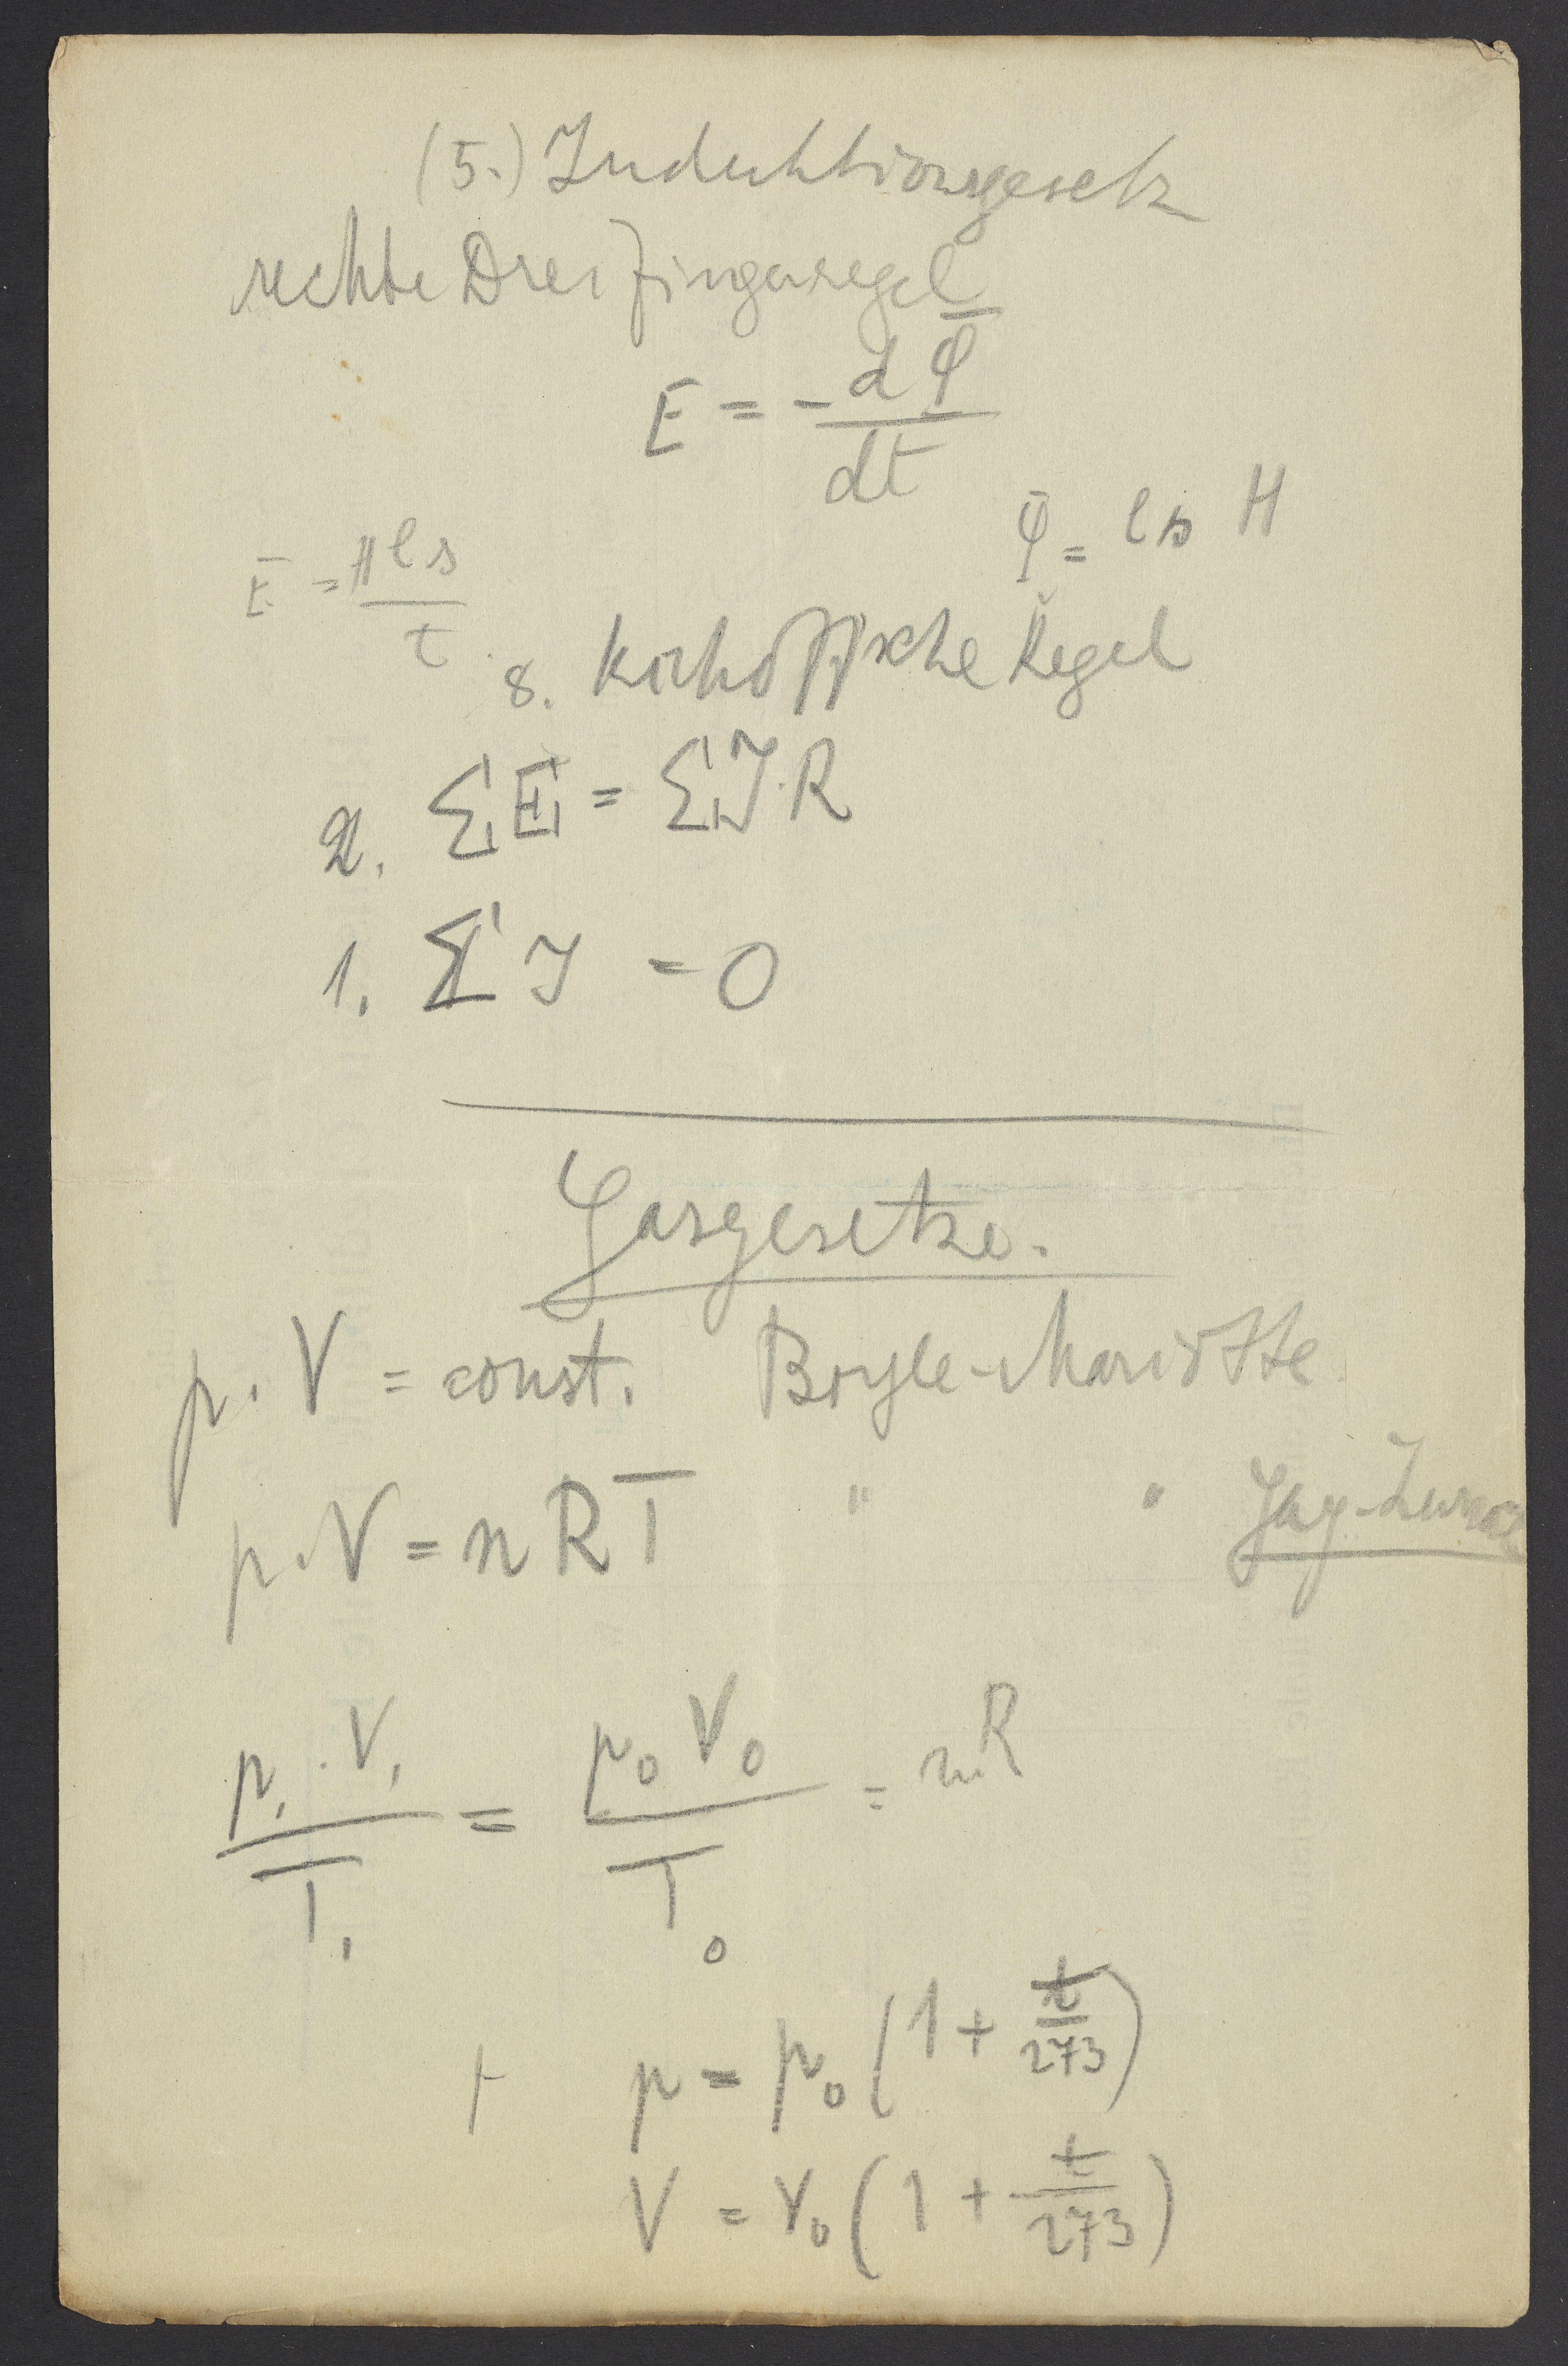 (5.) Induktionsgesetz
rechte Dreifingerregel
E = - dφ/dt
φ = l s H
E = H l s / t
8. Kirhoffsche Regel
2. ΣE = ΣJ·R
1. ΣJ = 0
Gasgesetze.
p · V = const. Boyle-Mariotte
p · V = n R T " " Gay-Lussac
p₁ · V₁ / T₁ = p₀ V₀ / T₀ = nR
p = p₀ (1 + t/273)
V = V₀ (1 + t/273)